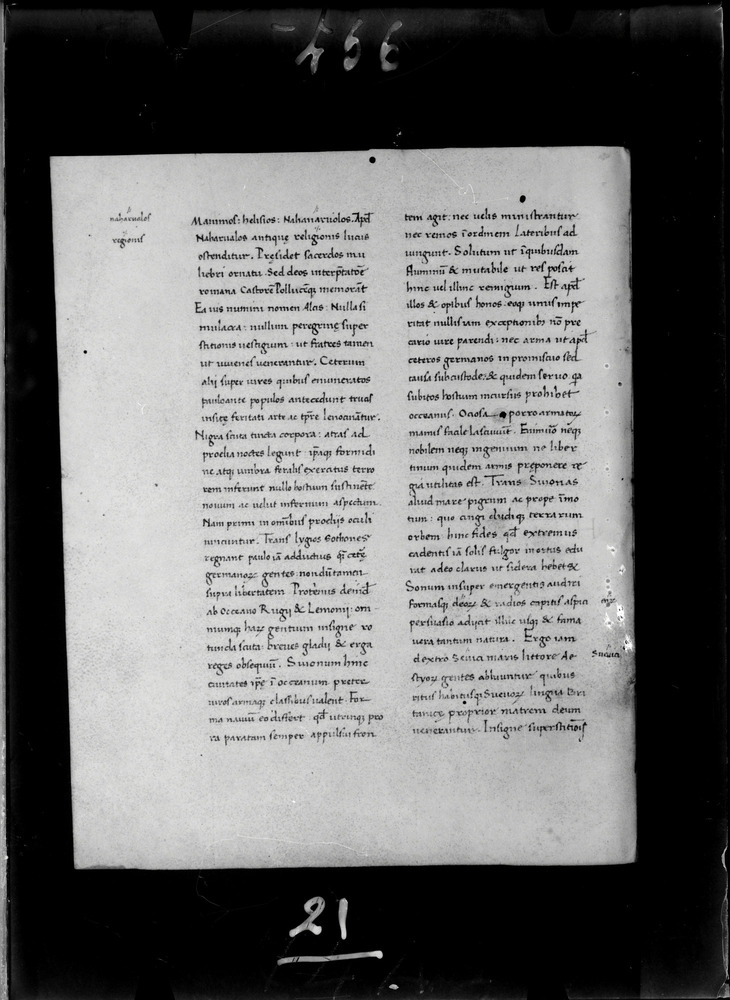 466
naharualos
regionis
Manimos: helisios: Nahanaruolos. Apđ
Naharualos antique religionis lucus
ostenditur. Presidet sacerdos mu
liebri ornatu. Sed deos interp̄tatōe
romana Castorē Pollucēq; memorāt
Ea uis numini nomen Alcis: Nulla si
mulacra: nullum peregrine super
stitionis uestigium: ut fratres tamen
ut iuuenes uenerantur. Ceterum
alij super uires quibus enumeratos
paulo ante populos antecedunt truces
insite feritati arte ac tp̄re lenocinātur.
Nigra scuta tincta corpora: atras ad
proelia noctes legunt: ip̄aq; formidi
ne atq; umbra feralis exercitus terro
rem inferunt nullo hostium sustinēte
nouum ac uelut infernum aspectum.
Nam primi in omībus proelijs oculi
uincuntur. Trans lygios Gothones
regnant paulo iā adductius q̄ cetę
germanoꝝ gentes nondū tamen
supra libertatem. Protenus deinđ
ab Occeano Rugij & Lemonij: om
niumq; haꝝ gentium insigne ro
tunda scuta: breues gladij & erga
reges obsequiū. Suionum hinc
ciuitates ip̄e ī occeanum preter
uiros armaq; classibus ualent. For
ma nauiū eo differt: qđ utrinq; pro
ra paratam semper appulsui fron
tem agit: nec uelis ministrantur
nec remos ī ordinem lateribus ad
iungunt. Solutum ut ī quibusdam
fluminū & mutabile ut res poscit
hinc uel illinc remigium. Est apđ
illos & opibus honos. eoq; unus impe
ritat nullis iam exceptionibꝫ nō pre
cario iure parendi: nec arma ut apđ
ceteros germanos in promiscuo sed
causa sub custode: & quidem seruo q̄a
subitos hostium incursus prohibet
occeanus. Ociosa porro armatoꝝ
manus facile lasciuiūt. Enimuō neq;
nobilem neq; ingenuum ne liber
tinum quidem armis preponere re
gia utilitas est. Trans Suionas
aliud mare pigrum ac prope īmo
tum: quo cingi cludiq; terrarum
orbem hinc fides qđ extremus
cadentis iā solis fulgor in ortus edu
rat adeo clarus ut sidera hebetet
Sonum insuper emergentis audiri
formasq; deoꝝ & radios capitis aspici
persuasio adijcit illuc usq; & fama
uera tantum natura. Ergo iam
dextro Seuici maris littore Ae-
styoꝝ gentes abluuntur quibus
ritus habitusq; Sueuoꝝ lingua Bri
tanice proprior matrem deum
uenerantur. Insigne superstitiōis
Sueuici
21